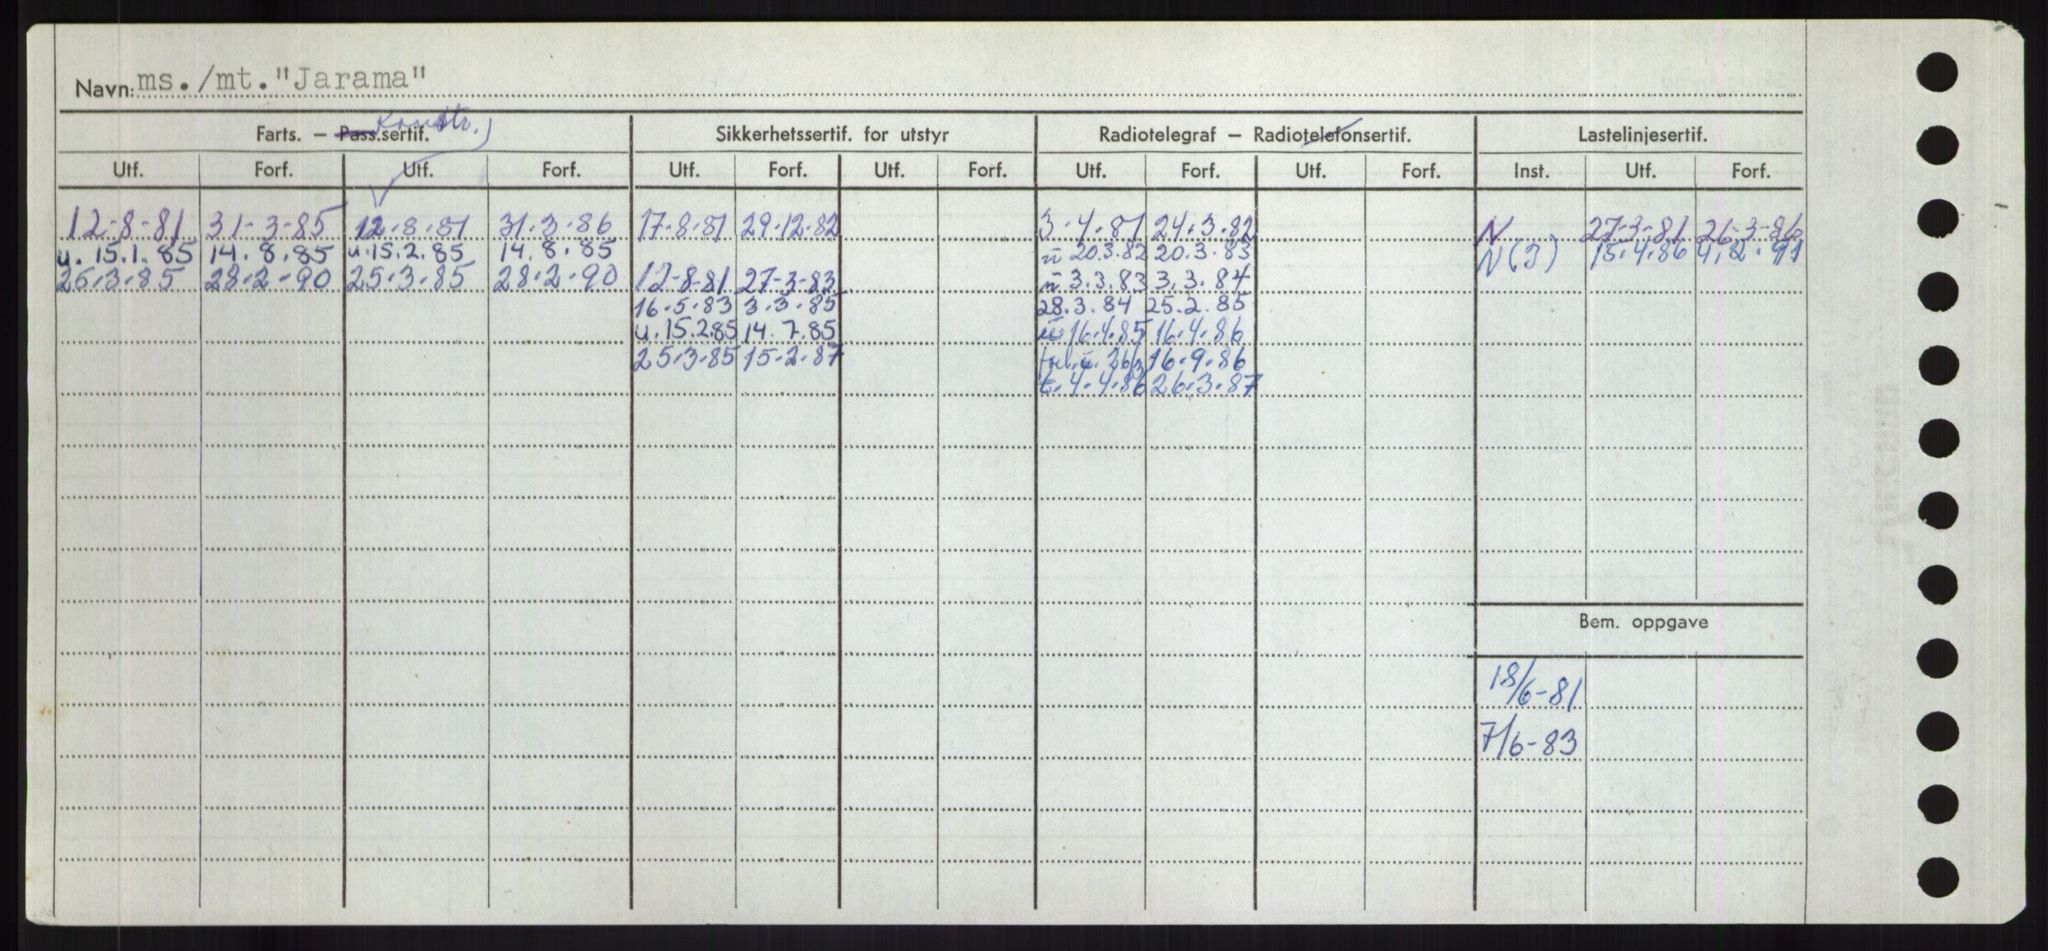 Navn: ms./mt. "Jarama"
Farts. – Pass.sertif. Konstr. Sikkerhetssertif. for utstyr Radiotelegraf – Radiotelefonsertif. Lastelinjesertif.
Utf. Forf. Utf. Forf. Utf. Forf. Utf. Forf. Utf. Forf. Utf. Forf. Inst. Utf. Forf.
12-8-81 31-3-85 12.8.81 31.3.86 17-8-81 29.12.82 3.4.81 24.3.82 N 27-3-81 26-3-86
u. 15.1.85 14.8.85 u.15.2.85 14.8.85 u 20.3.82 20.3.83 N(3) 15.4.86 4.2.91
25.3.85 28.2.90 25.3.85 28.2.90 12-8-81 27-3-83 u 3.3.83 3.3.84
16.5.83 3.3.85 28.3.84 25.2.85
u.15.2.85 14.7.85 u 16.4.85 16.4.86
25.3.85 15.2.87 16.9.86
t. 4.4.86 26.3.87
Bem. oppgave
18/6-81
7/6-83